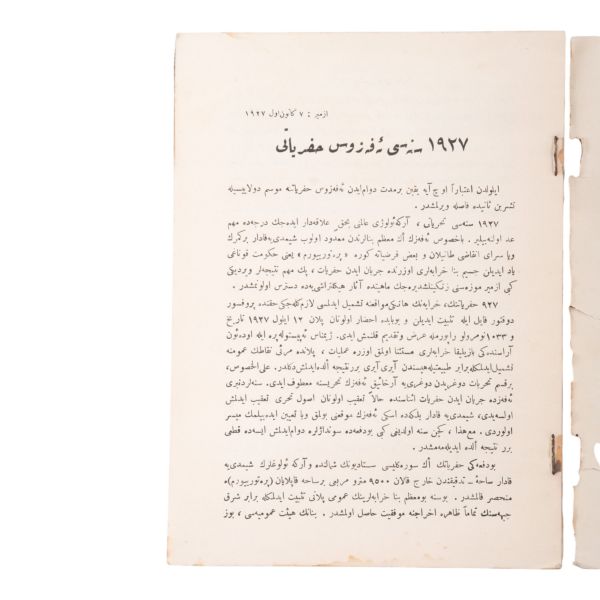 ازمیر : ٧ کانون اول ١٩٢٧
١٩٢٧ سنه‌سی ئه‌فه‌زوس حفریاتی
ایلولدن اعتباراً اوچ آیه یقین برمدت دوام ایدن ئه‌فه‌زوس حفریاتنه موسم دولاییسیله
تشرین ثانیده فاصله ویرلمشدر .
١٩٢٧ سنه‌سی تحریاتی ، آرکه‌ئولوژی عالمنی بحق علاقه‌دار ایده‌جك درجه‌ده مهم
عد اولنه‌بیلیر . باخصوص ئه‌فه‌زك اڭ معظم بنالرندن معدود اولوب شیمدی‌یه‌قادار برکمرك
ویا سرای انقاضی طانیلان و بعض فرضیاته کوره « پره‌توریبورم » یعنی حکومت قوناغی
یاد ایدیلن جسیم بنا خرابه‌لری اوزرنده جریان ایدن حفریات ، پك مهم نتیجه‌لر ویردیکی
کبی ازمیر موزه‌سنی زنکینلشدیره‌جك ماهیتده آثار هیکلتراشی‌یه‌ده دسترس اولونمشدر .
٩٢٧ حفریاتنك ، خرابه‌نك هانکی مواقعنه تشمیل ایدلمسی لازم‌کله‌جکی حقنده پروفسور
دوقتور قایل ایله تثبیت ایدیلن و بوبابده احضار اولونان پلان ١٢ ایلول ١٩٢٧ تاریخ
و ١٠٣٣ نومرولی راپورمله عرض وتقدیم قلنمش ایدی. ژیمناس ئه‌پیستولیه‌پره ایله اوده‌ئون
آراسنده‌کی بازیلیقا خرابه‌لری مستثنا اولمق اوزره عملیات ، پلانده مرئی نقاطك عمومنه
تشمیل ایدلمکله‌برابر طبیعتیله‌هپسندن آیری آیری برر نتیجه آلده‌ایدلمش دکلدر. علی‌الخصوص،
برقسم تحریات دوغریدن دوغری‌یه آرخائیق ئه‌فه‌زك تحریسنه معطوف ایدی. سنه‌لردنبری
ئه‌فه‌زده جریان ایدن حفریات اثناسنده حالاً تعقیب اولونان اصول تحری تعقیب ایدلمش
اولسه‌یدی، شیمدی‌یه قادار بلکه‌ده اسکی ئه‌فه‌زك موقعنی بولمق ویا تعیین ایده‌بیلمك میسر
اولوردی . مع‌هذا ، کچن سنه اولدیغی کبی بودفعه‌ده سونداژلره دوام‌ایدلمش ایسه‌ده قطعی
برر نتیجه آلده ایدیله‌مه‌مشدر .
بودفعه‌کی حفریاتك اڭ سوره‌کلیسی ستادیونك شمالنده و آرکه ئولوغلرك شیمدی‌یه
قادار ساحهٔ ـ تدقیقندن خارج قالان ٩٥٠٠ مترو مربعی برساحه قاپلایان (پره‌توریبورم)ه
منحصر قالمشدر . بوسنه بومعظم بنا خرابه‌لرینك عمومی پلانی تثبیت ایدلمکله برابر شرق
جبهه‌سنك تماماً ظاهره اخراجنه موفقیت حاصل اولمشدر . بنانك هیئت عمومیه‌سی ، بوز